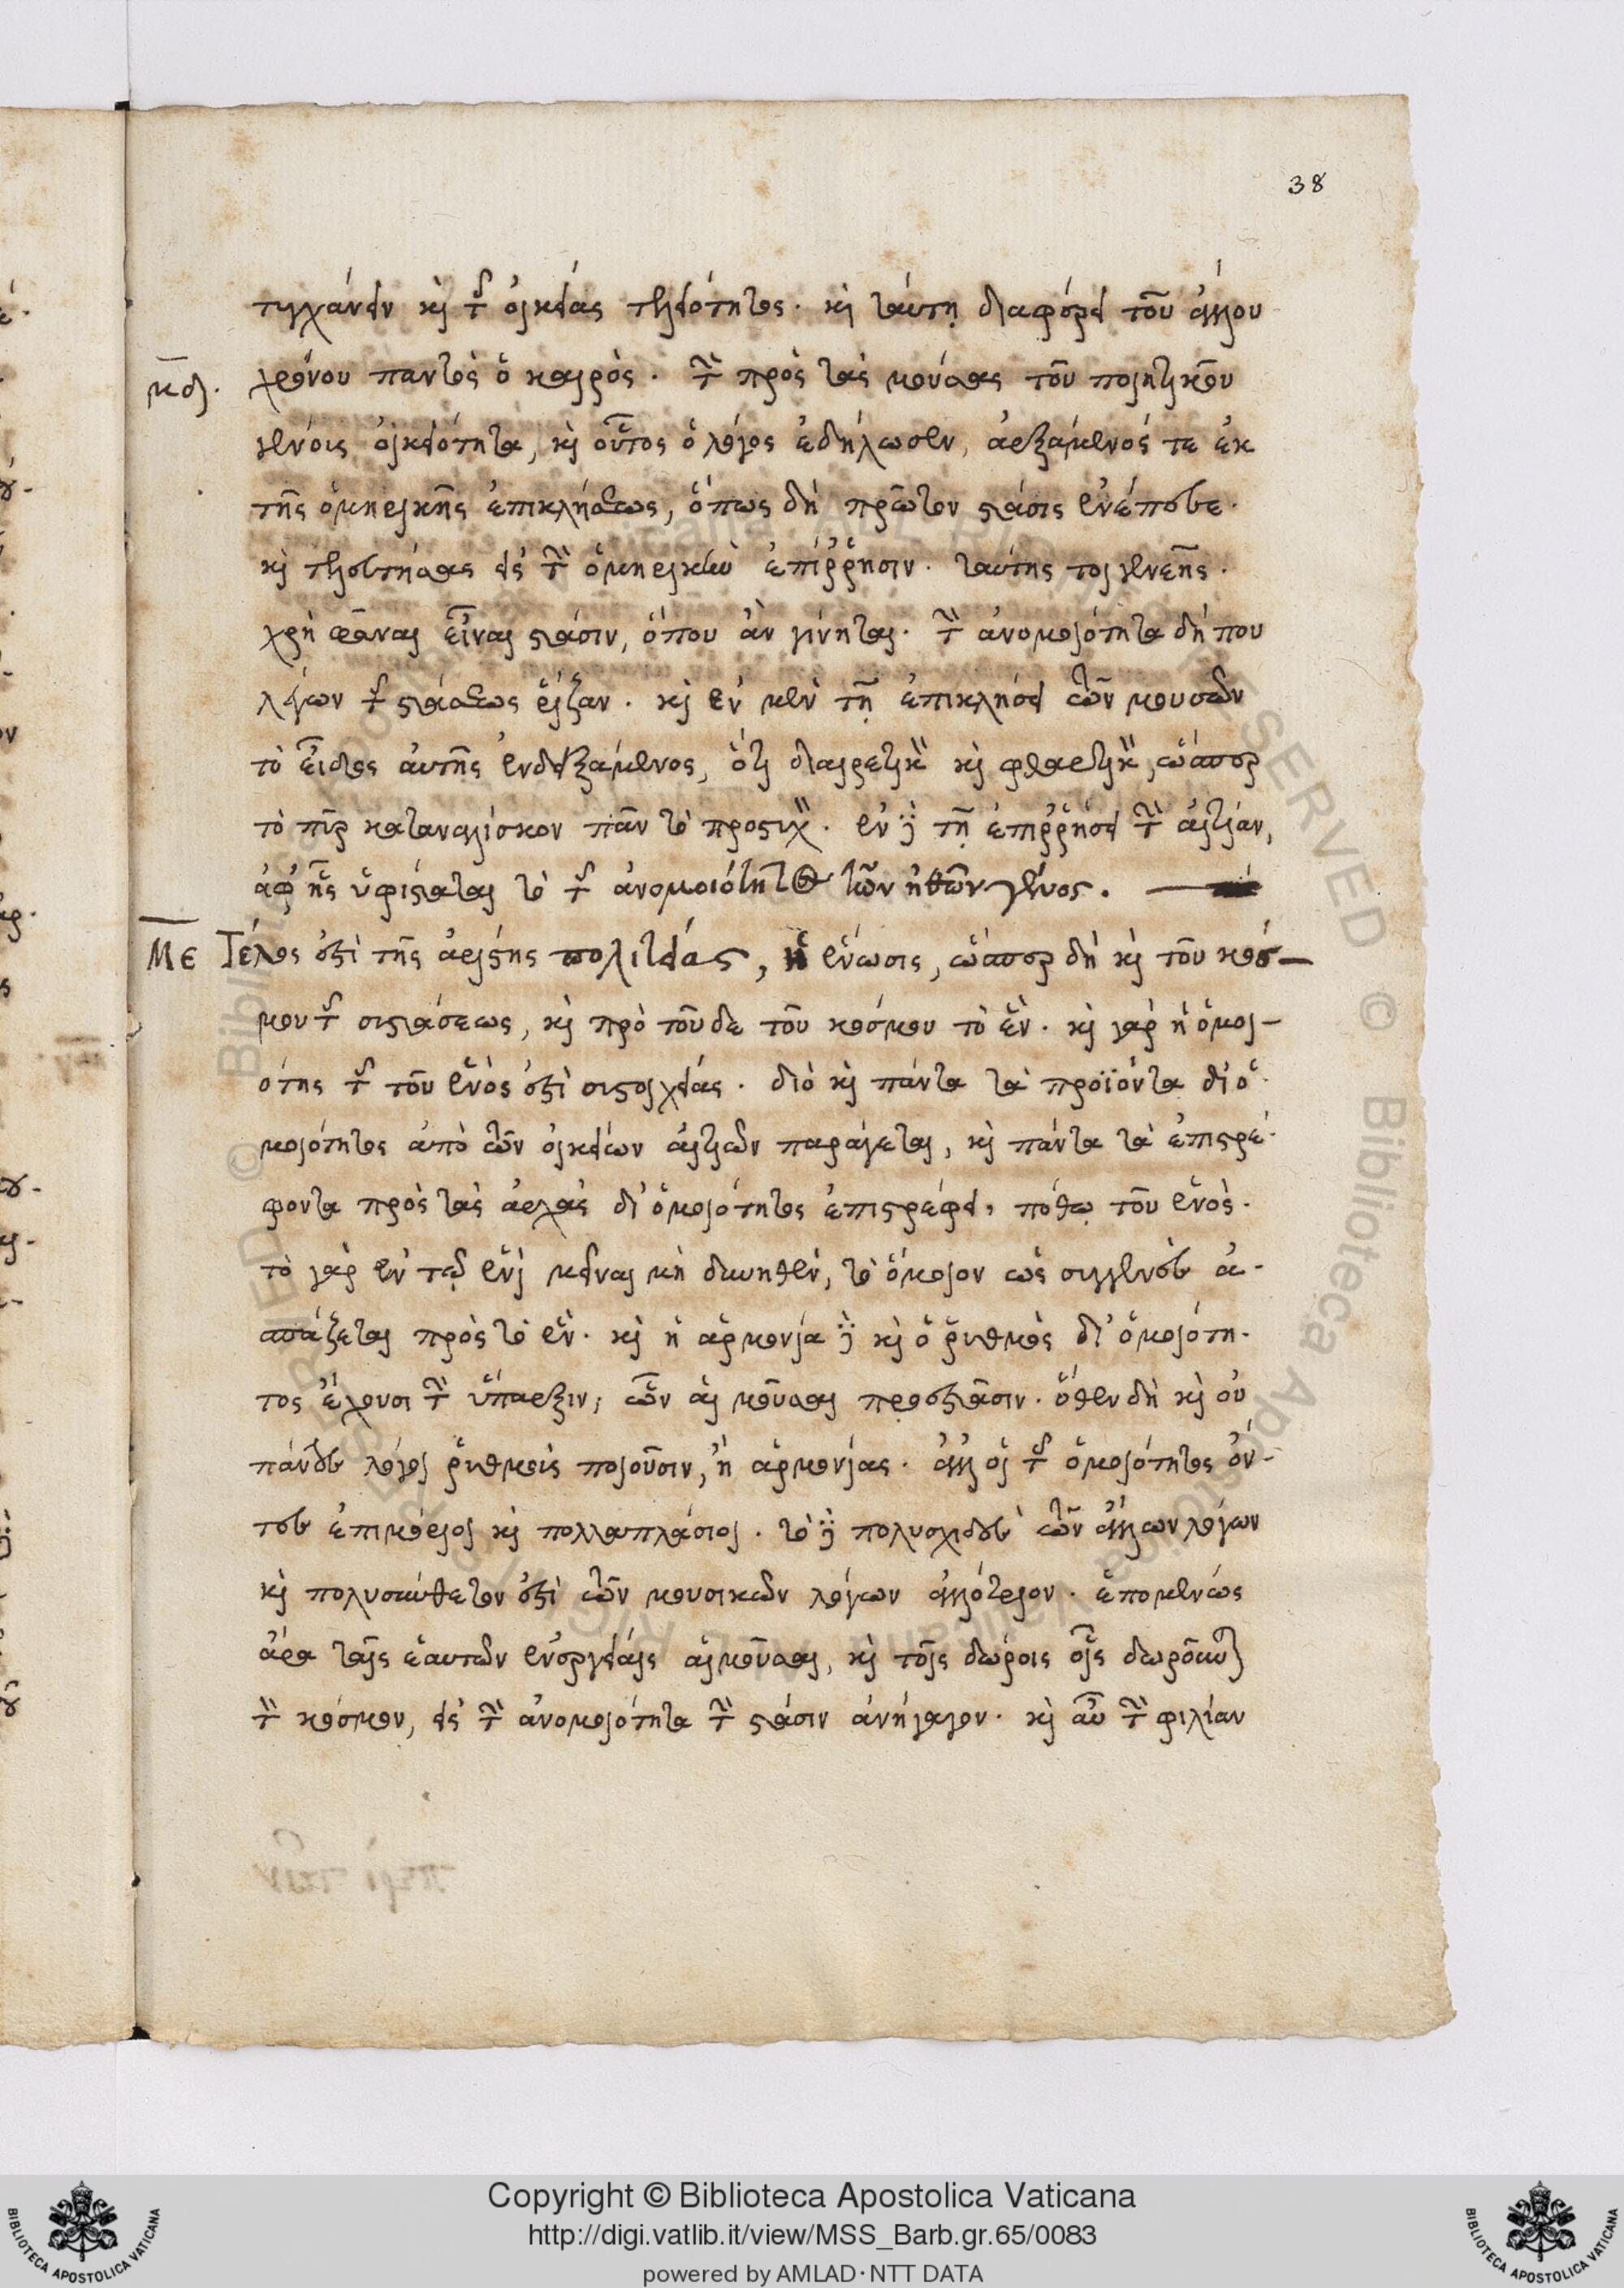 38
τυγχάνειν καὶ τῆς οἰκείας τελειότητος. καὶ ταύτῃ διαφέρει τοῦ ἄλλου
μδ. χρόνου παντὸς ὁ καιρὸς. τὴν πρὸς τὰς μούσας τοῦ ποιητικοῦ
γένους οἰκειότητα, καὶ οὗτος ὁ λόγος ἐδήλωσεν, ἀρξάμενός τε ἐκ
τῆς ὁμηρικῆς ἐπικλήσεως, ὅπως δὴ πρῶτον στάσις ἐνέπεσε.
καὶ τελευτήσας εἰς τὴν ὁμηρικὴν ἐπίρρησιν. ταύτης τοι γενεῆς.
χρὴ φάναι εἶναι στάσιν, ὅπου ἂν γίνηται. τὴν ἀνομοιότητα δήπου
λέγων τῆς στάσεως ῥίζαν. καὶ ἐν μὲν τῇ ἐπικλήσει τῶν μουσῶν
τὸ εἶδος αὐτῆς ἐνδειξάμενος, ὅτι διαιρετικὸν καὶ φθαρτικὸν, ὥσπερ
τὸ πῦρ καταναλίσκον πᾶν τὸ προστυχὸν. ἐν δὲ τῇ ἐπιρρήσει τὴν αἰτίαν,
ἀφ' ἧς ὑφίσταται τὸ τῆς ἀνομοιότητος τῶν ἠθῶν γένος.
ΜΕ Τέλος ἐστὶ τῆς ἀρίστης πολιτείας, ἡ ἕνωσις, ὥσπερ δὴ καὶ τοῦ κόσ-
μου τῆς συστάσεως, καὶ πρὸ τοῦδε τοῦ κόσμου τὸ ἕν. καὶ γὰρ ἡ ὁμοι-
ότης τῆς τοῦ ἑνὸς ἐστὶ συστοιχείας. διὸ καὶ πάντα τὰ προϊόντα δι' ὁ-
μοιότητος ἀπὸ τῶν οἰκείων αἰτιῶν παράγεται, καὶ πάντα τὰ ἐπιστρέ-
φοντα πρὸς τὰς ἀρχὰς δι' ὁμοιότητος ἐπιστρέφει, πόθῳ τοῦ ἑνὸς.
τὸ γὰρ ἐν τῷ ἑνὶ μεῖναι μὴ δυνηθὲν, τὸ ὅμοιον ὡς συγγενὲς ἀ-
σπάζεται πρὸς τὸ ἕν. καὶ ἡ ἁρμονία δὲ καὶ ὁ ῥυθμὸς δι' ὁμοιότη-
τος ἔχουσι τὴν ὕπαρξιν, ὧν αἱ μοῦσαι προστᾶσιν. ὅθεν δὴ καὶ οὐ
πάντες λόγοι ῥυθμοὺς ποιοῦσιν, ἢ ἁρμονίας. ἀλλ' οἱ τῆς ὁμοιότητος ὄν-
τες ἐπιμόριοι καὶ πολλαπλάσιοι. τὸ δὲ πολυσχιδὲς τῶν ἄλλων λόγων
καὶ πολυσύνθετον ἐστὶ τῶν μουσικῶν λόγων ἀλλότριον. ἑπομένως
ἄρα ταῖς ἑαυτῶν ἐνεργείαις αἱ μοῦσαι, καὶ τοῖς δώροις οἷς δωροῦνται
τὸν κόσμον, εἰς τὴν ἀνομοιότητα τὴν στάσιν ἀνήγαγον. καὶ αὖ τὴν φιλίαν
Copyright © Biblioteca Apostolica Vaticana
http://digi.vatlib.it/view/MSS_Barb.gr.65/0083
powered by AMLAD · NTT DATA
BIBLIOTECA APOSTOLICA VATICANA
BIBLIOTECA APOSTOLICA VATICANA